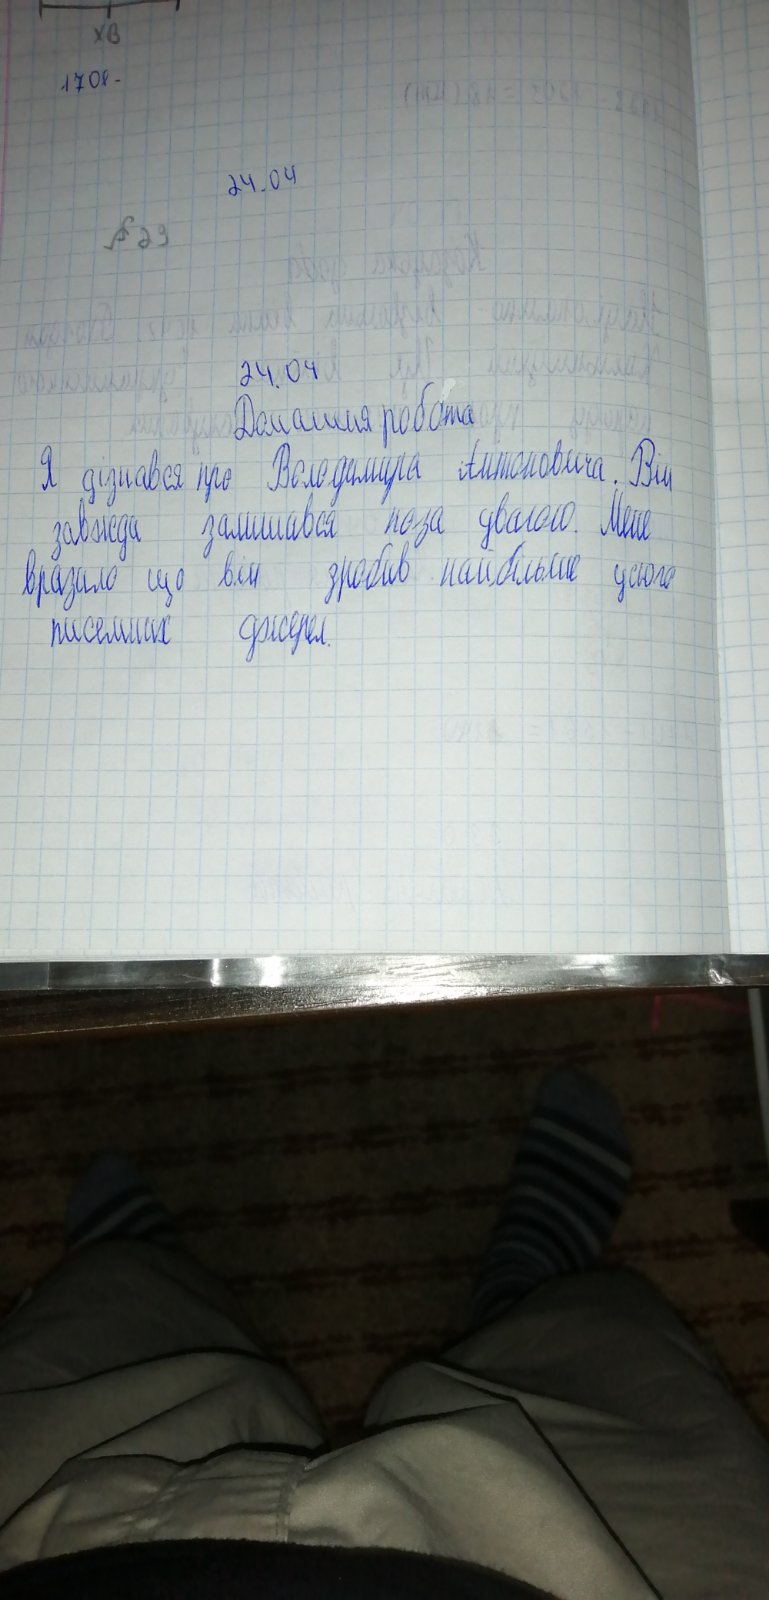 ХВ
1708-
24.04
§29
24.04
Домашня робота
Я дізнався про Володамира Антоновича. Він
завжда залишався поза увагою. Мене
вразило що він зробив найбільше усього
писемних джерел.